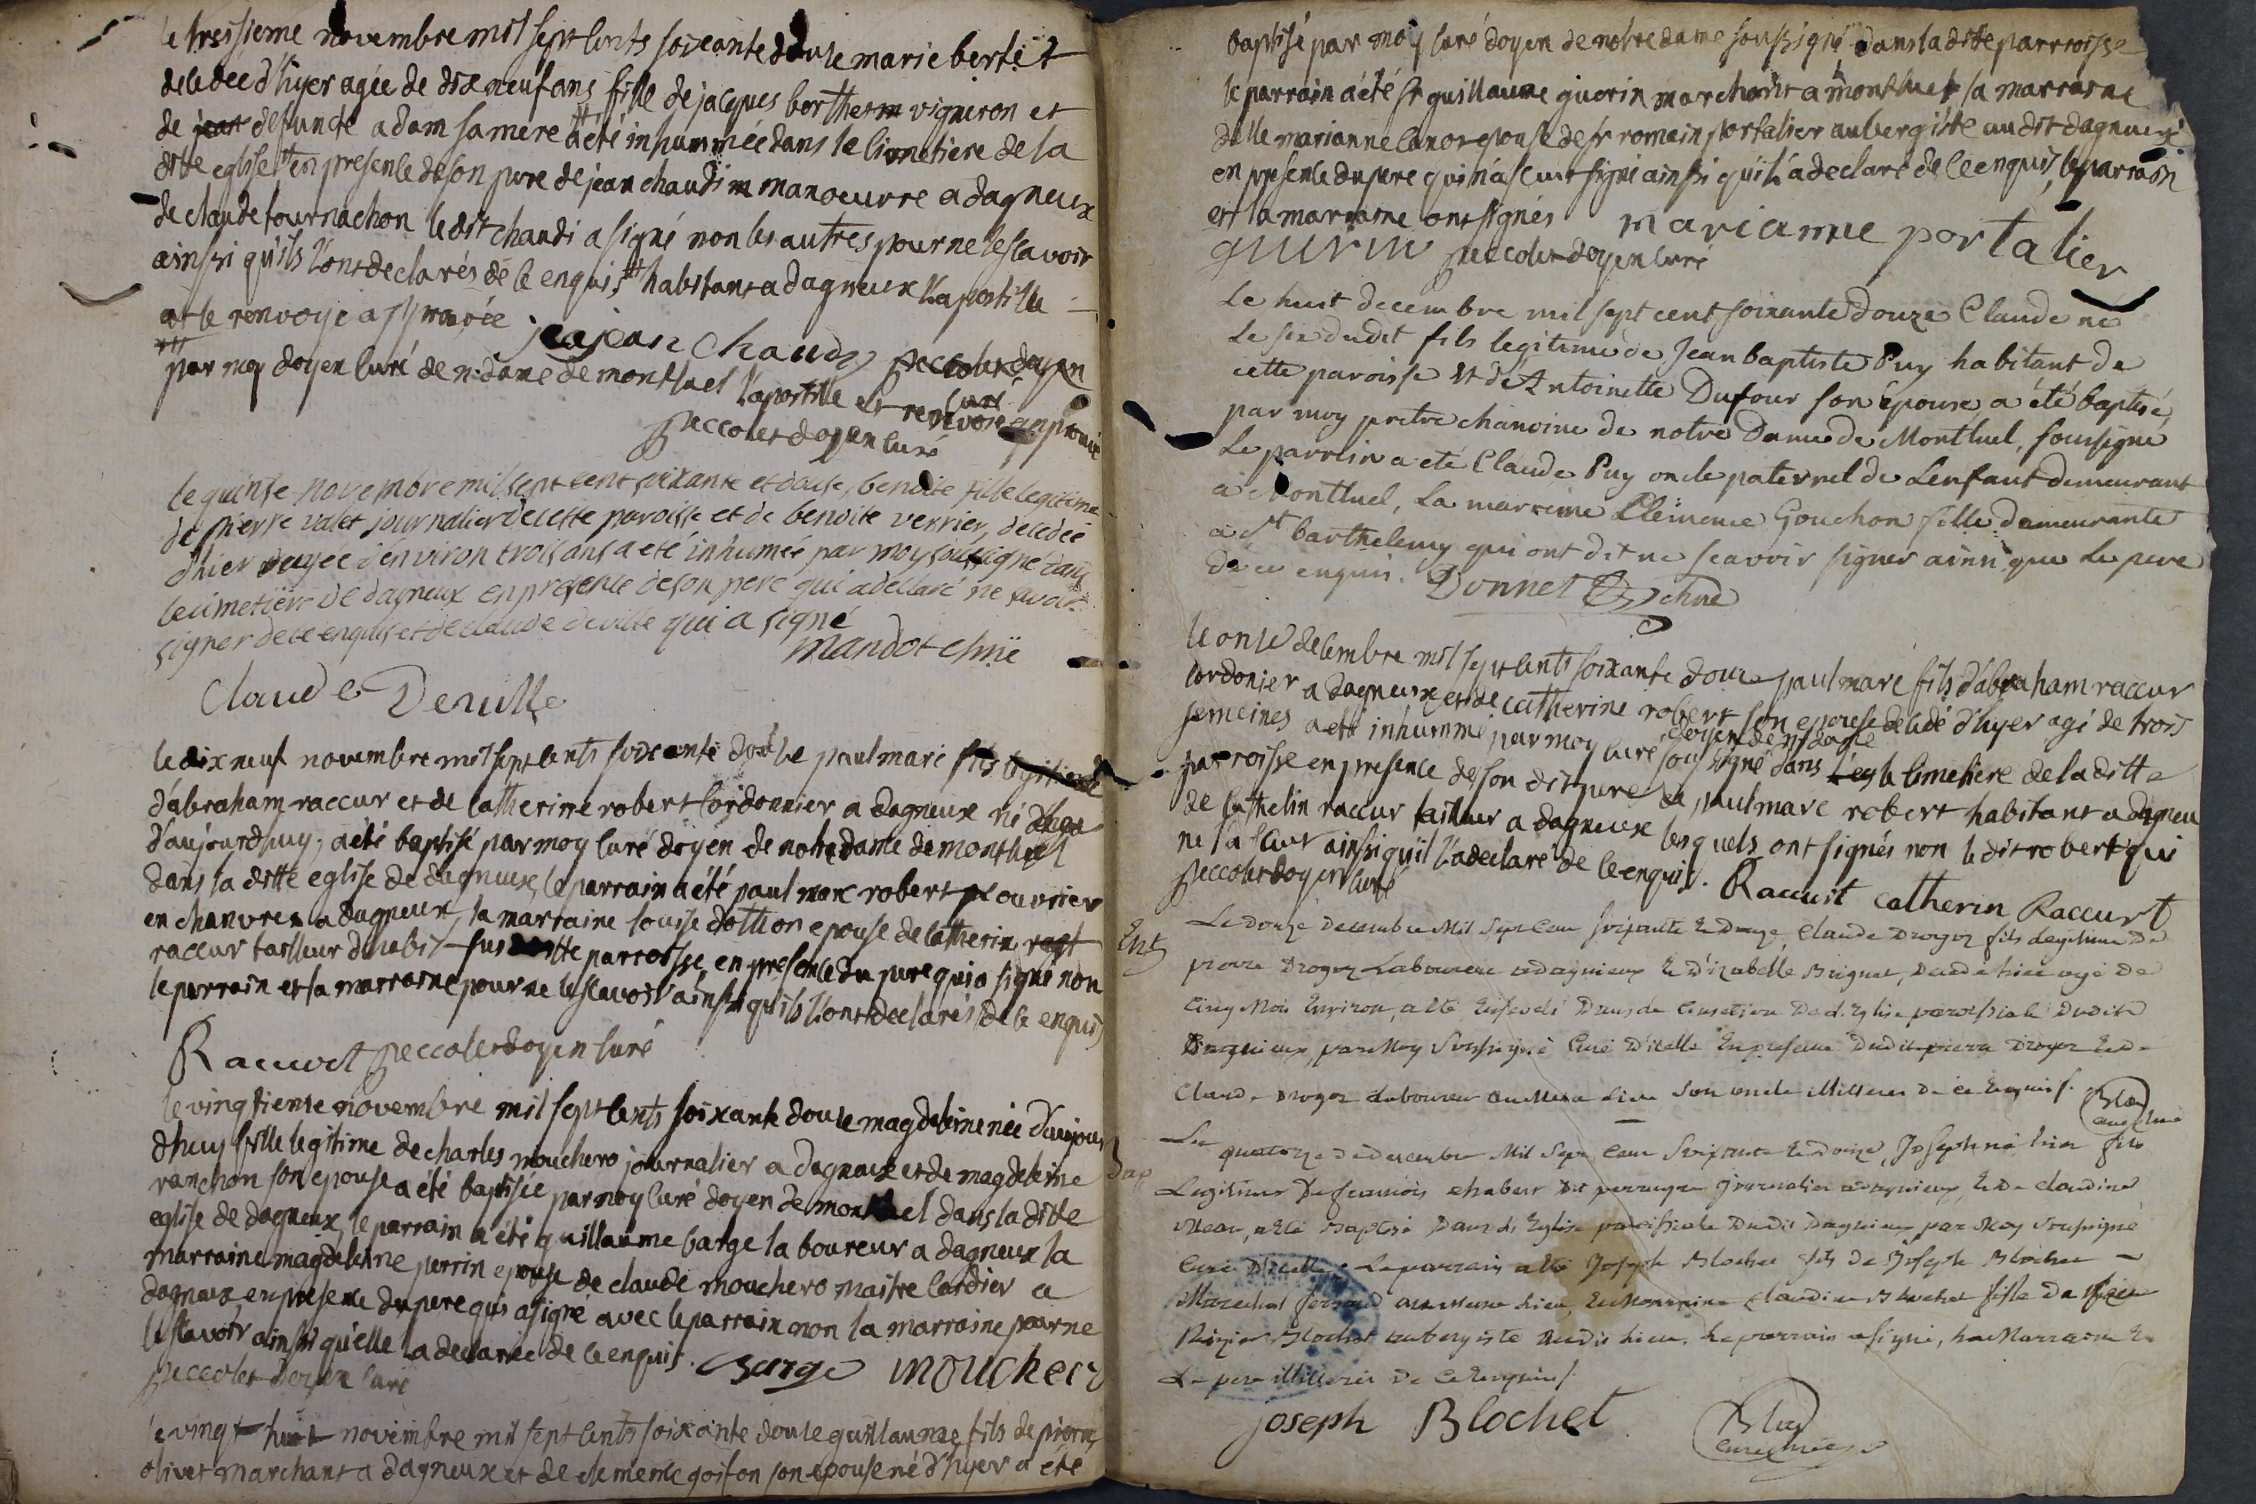 le treisieme novembre mil sept cents soixante douse marie bertet
decedee d'hyer agée de dix neuf ans fille de jacques berthet vigneron et
de defuncte adam sa mere a été inhumée dans le cimetiere de la
ditte eglise en presence de son pere de jean chaudi manoeuvre a dagneux
de claude fournachon le dit chaudi a signé non les autres pour ne le scavoir
ainsi qu'ils l'ont declarés de ce enquis habitants a dagneux l'apostille
et le renvoye approuvée
jean Chaudy peccolet doyen
curé
par moy doyen curé de n: dame de montluel l'apostille et renvoye approuvé
peccolet doyen curé
le quinse novembre mil sept cent soixante et douse, benoite fille legitime
de pierre valet journalier de cette paroisse et de benoite verrier, decedée
d'hier agée d'environ trois ans a eté inhumée par moy soussigné dans
le cimetiere de dagneux en presence de son pere qui a declaré ne savoir
signer de ce enquis et de claude deville qui a signé
mandot chne
Claude Deville
le dix neuf novembre mil sept cents soixante douse paul marc fils legitime
d'abraham raccur et de catherine robert cordonnier a dagneux né
d'aujourdhuy, a été baptisé par moy curé doyen de notre dame de montluel
dans la ditte eglise de dagneux, le parrain a été paul marc robert ouvrier
en chanvre a dagneux, la marraine louise dottion epouse de catherin
raccur tailleur d'habit sus ditte parroisse, en presence du pere qui a signé non
le parrain et la marraine pour ne le scavoir ainsi qu'ils l'ont declarés de ce enquis
Racurt peccolet doyen curé
le vingtieme novembre mil sept cents soixante douse magdeleine née d'aujour
dhuy fille legitime de charles mouchero journalier a dagneux et de magdeleine
ranchon son epouse a été baptisée par moy curé doyen de montluel dans la ditte
eglise de dagneux, le parrain a été guillaume barge laboureur a dagneux la
marraine magdeleine perrin epouse de claude mouchero maitre cardier a
dagneux, en presence du pere qui a signé avec le parrain non la marraine pour ne
le scavoir ainsi qu'elle l'a declarée de ce enquis. Barge mouchero
peccolet doyen curé
le vingt huit novembre mil sept cents soixante douse guillaume fils de pierre
olivet marchant a dagneux et de clemence goiton son epouse né d'hyer a été
baptisé par moy curé doyen de notre dame soussigné dans la ditte parroisse
le parrain a été sr guillaume guerin marchant a montluel la marraine
delle marianne canor epouse de sr romain portalier aubergiste au dit dagneux
en presence du pere qui n'a scu signé ainsi qu'il a declaré de ce enquis, le parrain
et la marraine ont signés marianne portalier
guerin peccolet doyen curé
Le huit decembre mil sept cent soixante douze Claude né
Le six dudit fils legitime de Jean baptiste Puy habitant de
cette paroisse et de Antoinette Dufour son épouse a été baptisé
par moy pretre chanoine de notre Dame de Montluel, soussigné
Le parrein a eté Claude Puy oncle paternel de L'enfant demeurant
a Montluel, La marreine Clemence Gouchon fille demeurante
a St barthelemy qui ont dit ne scavoir signer ainsi que Le pere
de ce enquis. Donnet chne
le onse decembre mil sept cents soixante douse paul marc fils d'abraham raccur
cordonier a dagneux et de catherine robert son epouse decedé d'hyer agé de trois
semeines a été inhummé par moy curé doyen de n: dame soussigné dans le cimetiere de la ditte
parroisse en presence de son dit pere de paul marc robert habitant a dagneux
de cathelin raccur tailleur a dagneux lesquels ont signés non le dit robert qui
ne l'a scut ainsi qu'il l'a declaré de ce enquis. Racurt catherin Raccurt
peccolet doyen curé
Ent
Le Douze Decembre Mil Sept Cent soixante Et Douze, Claude Drogoz fils Legitime De
pierre Drogoz Laboureur a dagnieux Et D'izabelle Brignet, Decedé hier agé De
Cinq Mois Environ, a Eté Enseveli Dans Le Cimetiere De L'Eglise paroissiale Dudit
Dagnieux par Moy Soussigné Curé D'icelle En presence Dudit pierre Drogoz Et De
Claude Drogoz Laboureur au Meme Lieu Son oncle illitterés De ce Enquis.
curé chne
Bap
Le quatorze Decembre Mil Sept Cent Soixante Et Douze, Joseph né hier fils
Legitime De francois chabert Dit perruque Journalier a dagnieux, Et De claudine
Mear, a Eté Baptisé Dans L'Eglise paroissiale Dudit Dagnieux par Moy Soussigné
Curé D'icelle. Le parrain a Eté Joseph Blochet fils De Joseph Blochet
Marechal ferrand au Meme Lieu, La Marraine Claudine Blochet fille De
Blochet aubergiste Audit Lieu. Le parrain a signé, La Marraine Et
Le pere illitterés De Ce Enquis.
joseph Blochet
curé chne